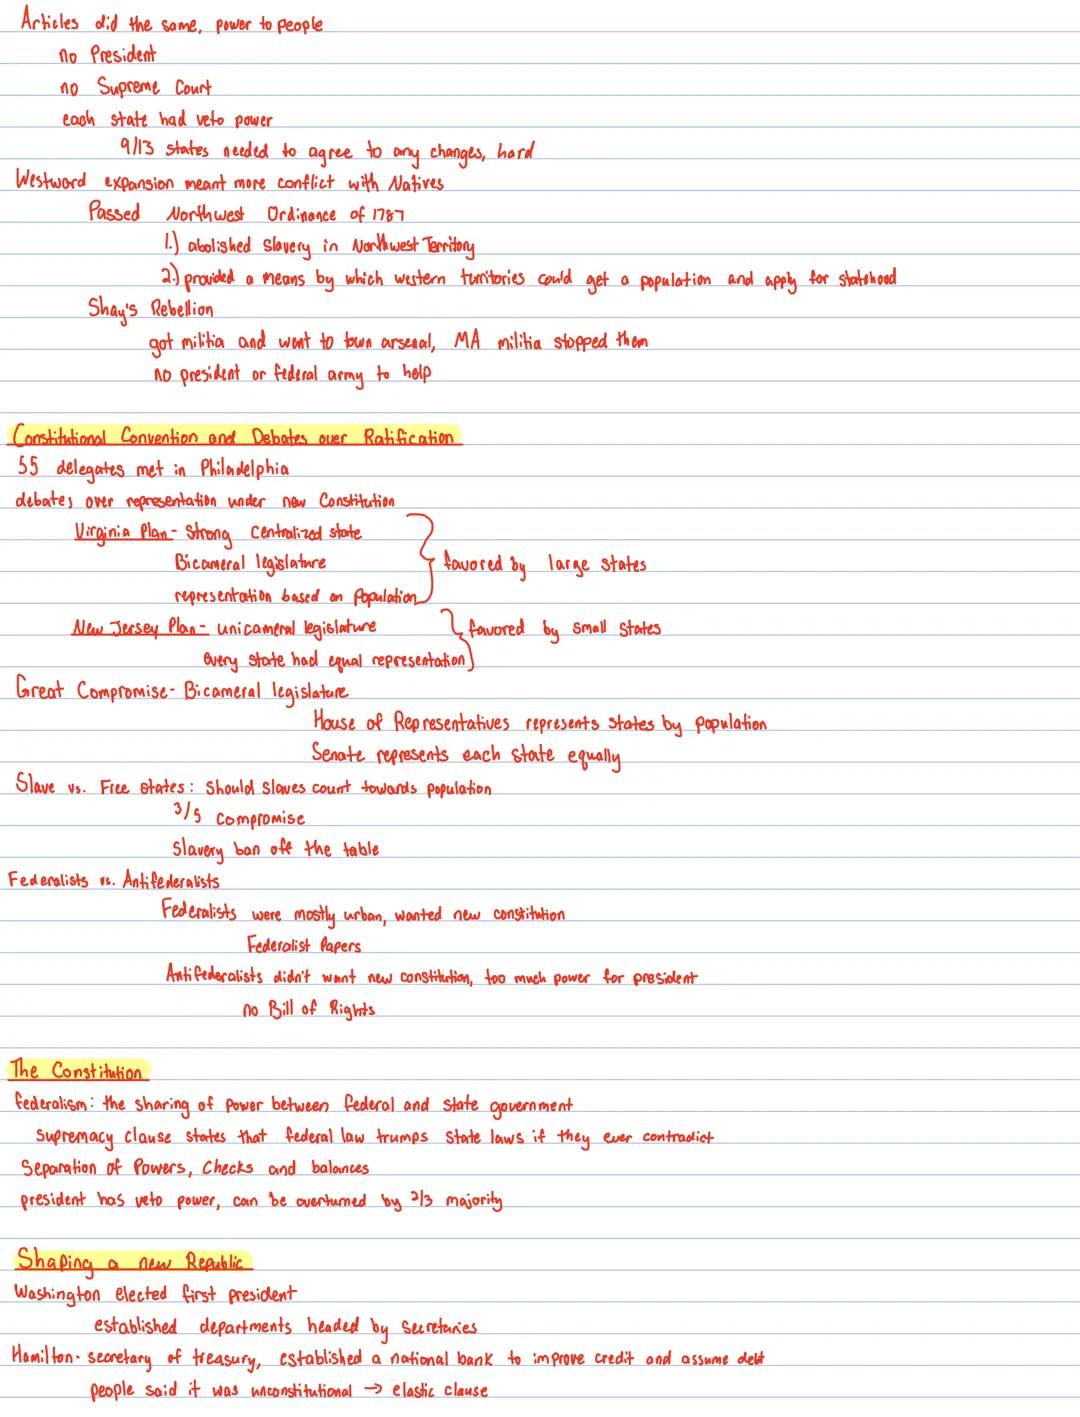 Articles did the same, power to people
no President
no Supreme Court
each state had veto power
9/13 states needed to agree to any changes, hard
Westward expansion meant more conflict with Natives
Passed Northwest Ordinance of 1787
1.) abolished slavery in Northwest Territory
2.) provided a means by which western territories could get a population and apply for statehood
Shay's Rebellion
got militia and went to town arsenal, MA militia stopped them
no president or federal army to help
Constitutional Convention and Debates over Ratification
55 delegates met in Philadelphia
debates over representation under new Constitution
Virginia Plan- Strong centralized state
Bicameral legislature
favored by large states
representation based on Population
New Jersey Plan- unicameral legislature
favored by small states
every state had equal representation
Great Compromise- Bicameral legislature
House of Representatives represents states by population
Senate represents each state equally
Slave vs. Free states: Should slaves count towards population
3/5 compromise
Slavery ban off the table
Federalists vs. Antifederalists
Federalists were mostly urban, wanted new constitution
Federalist Papers
Antifederalists didn't want new constitution, too much power for president
no Bill of Rights
The Constitution
federalism: the sharing of power between federal and state government
supremacy clause states that federal law trumps state laws if they ever contradict
Separation of Powers, Checks and balances
president has veto power, can be overturned by 2/3 majority
Shaping a new Republic
Washington elected first president
established departments headed by secretaries
Hamilton- secretary of treasury, established a national bank to improve credit and assume debt
people said it was unconstitutional → elastic clause